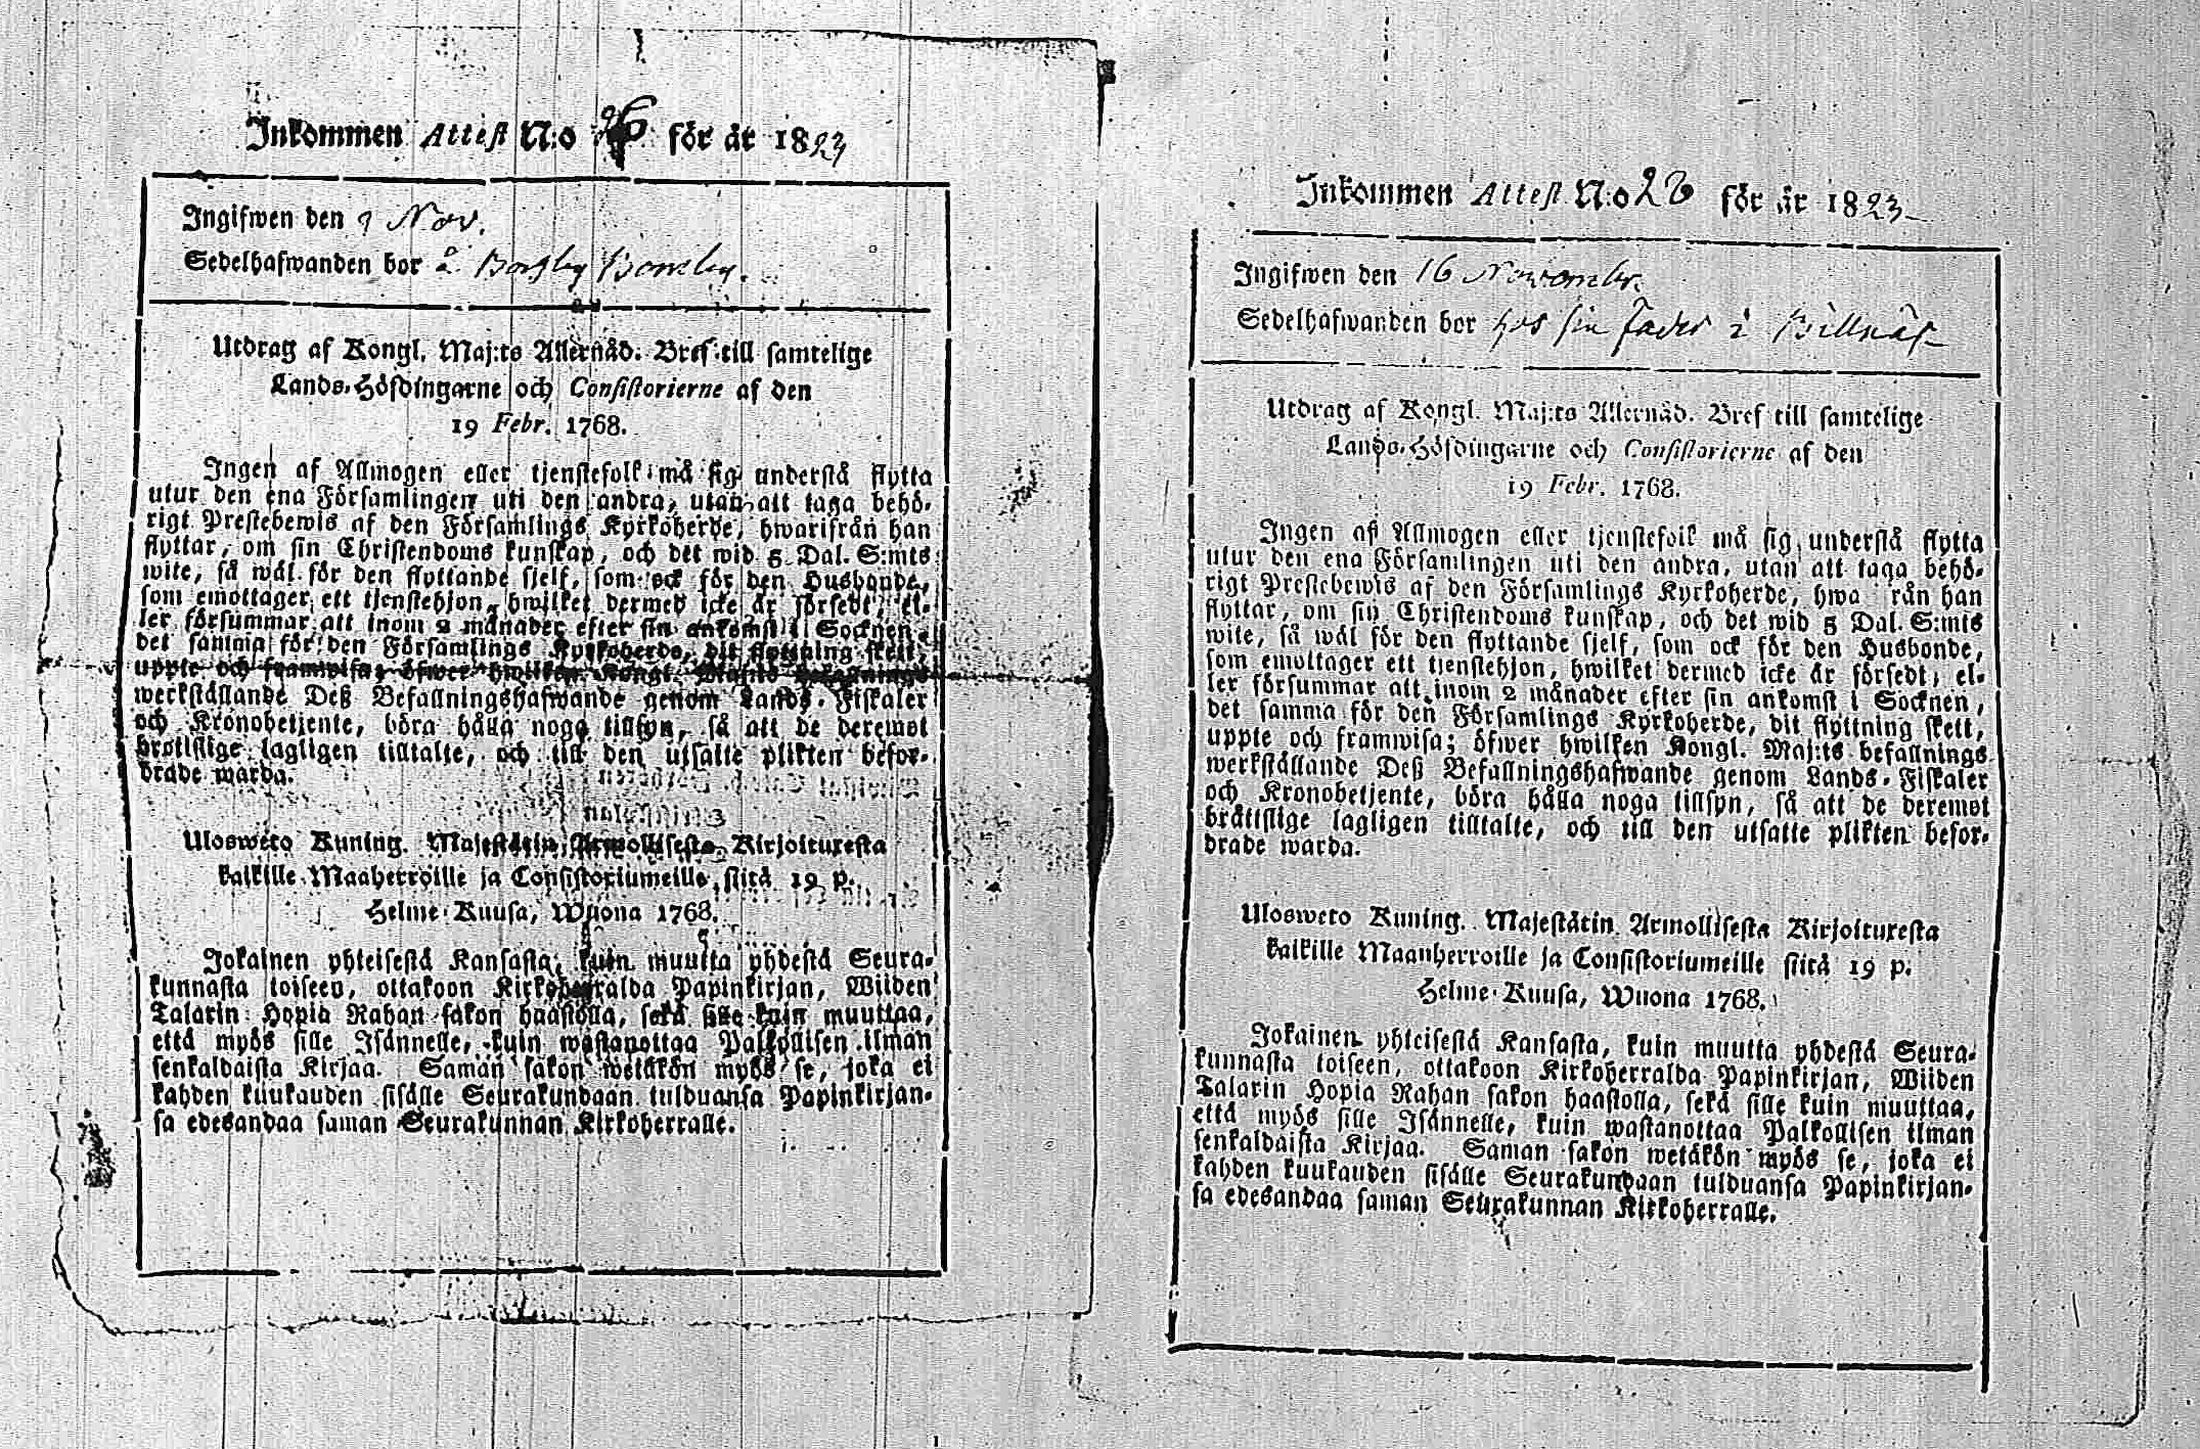 Inkommen Attest N:o 26 för år 1823
Ingifwen den 9 Nov.
Sedelhafwanden bor å
Utdrag af Kongl. Maj:ts Allernåd. Bref till samtelige
Lands-Höfdingarne och Consistorierne af den
19 Febr. 1768.
Ingen af Allmogen eller tjenstefolk må sig understå flytta
utur den ena Församlingen uti den andra, utan att taga behö-
rigt Prestebewis af den Församlings Kyrkoherde, hwarifrån han
flyttar, om sin Christendoms kunskap, och det wid 5 Dal. S:mts
wite, så wäl för den flyttande sjelf, som ock för den Husbonde,
som emottager ett tjenstehjon, hwilket dermed icke är försedt, el-
ler försummar att inom 2 månader efter sin ankomst i Socknen,
det samma för den Församlings Kyrkoherde, dit flyttning skett,
uppte och framwisa; öfwer hwilken Kongl. Maj:ts befallnings
werkställande Deß Befallningshafwande genom Lands-Fiskaler
och Kronobetjente, böra hålla noga tillsyn, så att de deremot
brottslige lagligen tilltalte, och till den utsatte plikten befor-
drade warda.
Ulosweto Kuning. Majestätin Armollisesta Kirjoituxesta
kaikille Maaherroille ja Consistoriumeille siitä 19 p.
Helme-Kuusa, Wuona 1768.
Jokainen yhteisestä Kansasta, kuin muutta yhdestä Seura-
kunnasta toiseen, ottakoon Kirkoherralda Papinkirjan, Wiiden
Talarin Hopia Rahan sakon haastolla, sekä sille kuin muuttaa,
että myös sille Isännelle, kuin wastanottaa Palkollisen ilman
senkaldaista Kirjaa. Saman sakon wetäkön myös se, joka ei
kahden kuukauden sisälle Seurakundaan tulduansa Papinkirjan-
sa edesandaa saman Seurakunnan Kirkoherralle.
Inkommen Attest N:o 28 för år 1823
Ingifwen den 16 Novembr.
Sedelhafwanden bor hos sin Fader i Billnäs
Utdrag af Kongl. Maj:ts Allernåd. Bref till samtelige
Lands-Höfdingarne och Consistorierne af den
19 Febr. 1768.
Ingen af Allmogen eller tjenstefolk må sig understå flytta
utur den ena Församlingen uti den andra, utan att taga behö-
rigt Prestebewis af den Församlings Kyrkoherde, hwa rån han
flyttar, om sin Christendoms kunskap, och det wid 5 Dal. S:mts
wite, så wäl för den flyttande sjelf, som ock för den Husbonde,
som emottager ett tjenstehjon, hwilket dermed icke är försedt, el-
ler försummar att inom 2 månader efter sin ankomst i Socknen,
det samma för den Församlings Kyrkoherde, dit flyttning skett,
uppte och framwisa; öfwer hwilken Kongl. Maj:ts befallnings
werkställande Deß Befallningshafwande genom Lands-Fiskaler
och Kronobetjente, böra hålla noga tillsyn, så att de deremot
bråttslige lagligen tilltalte, och till den utsatte plikten befor-
drade warda.
Ulosweto Kuning. Majestätin Armollisesta Kirjoituxesta
kaikille Maanherroille ja Consistoriumeille siitä 19 p.
Helme-Kuusa, Wuona 1768.
Jokainen yhteisestä Kansasta, kuin muutta yhdestä Seura-
kunnasta toiseen, ottakoon Kirkoherralda Papinkirjan, Wiiden
Talarin Hopia Rahan sakon haastolla, sekä sille kuin muuttaa,
että myös sille Isännelle, kuin wastanottaa Palkollisen ilman
senkaldaista Kirjaa. Saman sakon wetäkön myös se, joka ei
kahden kuukauden sisälle Seurakundaan tulduansa Papinkirjan-
sa edesandaa saman Seurakunnan Kirkoherralle.